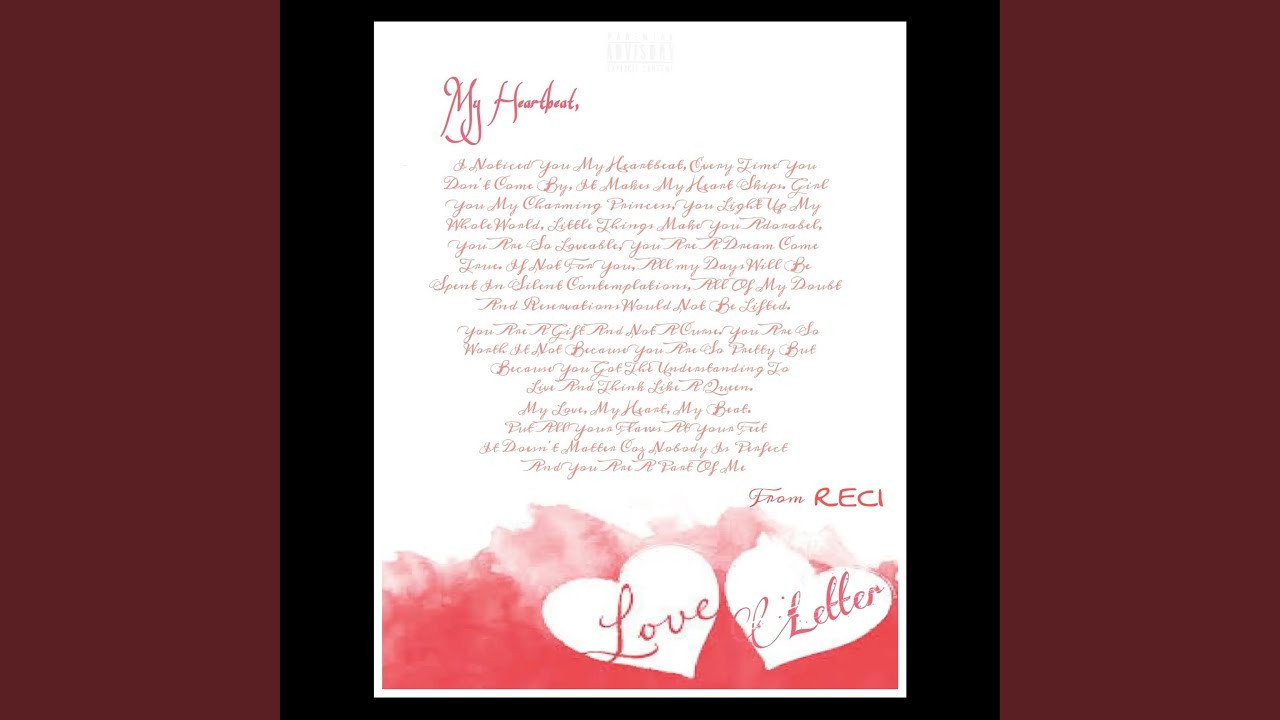 PARENTAL
ADVISORY
EXPLICIT CONTENT
My Heartbeat,
I Noticed You My Heartbeat, Every Time You
Don't Come By, It Makes My Heart Skips. Girl
You My Charming Princess, You Light Up My
Whole World, Little Things Make You Adorabel,
You Are So Loveable, You Are A Dream Come
True. If Not For You, All my Days Will Be
Spent In Silent Contemplations, All Of My Doubt
And Reservations Would Not Be Lifted.
You Are A Gift And Not A Curse. You Are So
Worth It Not Because You Are So Pretty But
Because You Got The Understanding To
Live And Think Like A Queen.
My Love, My Heart, My Beat.
Put All Your Flaws At Your Feet
It Doesn't Matter Coz Nobody Is Perfect
And You Are A Part Of Me
From RECI
Love Letter